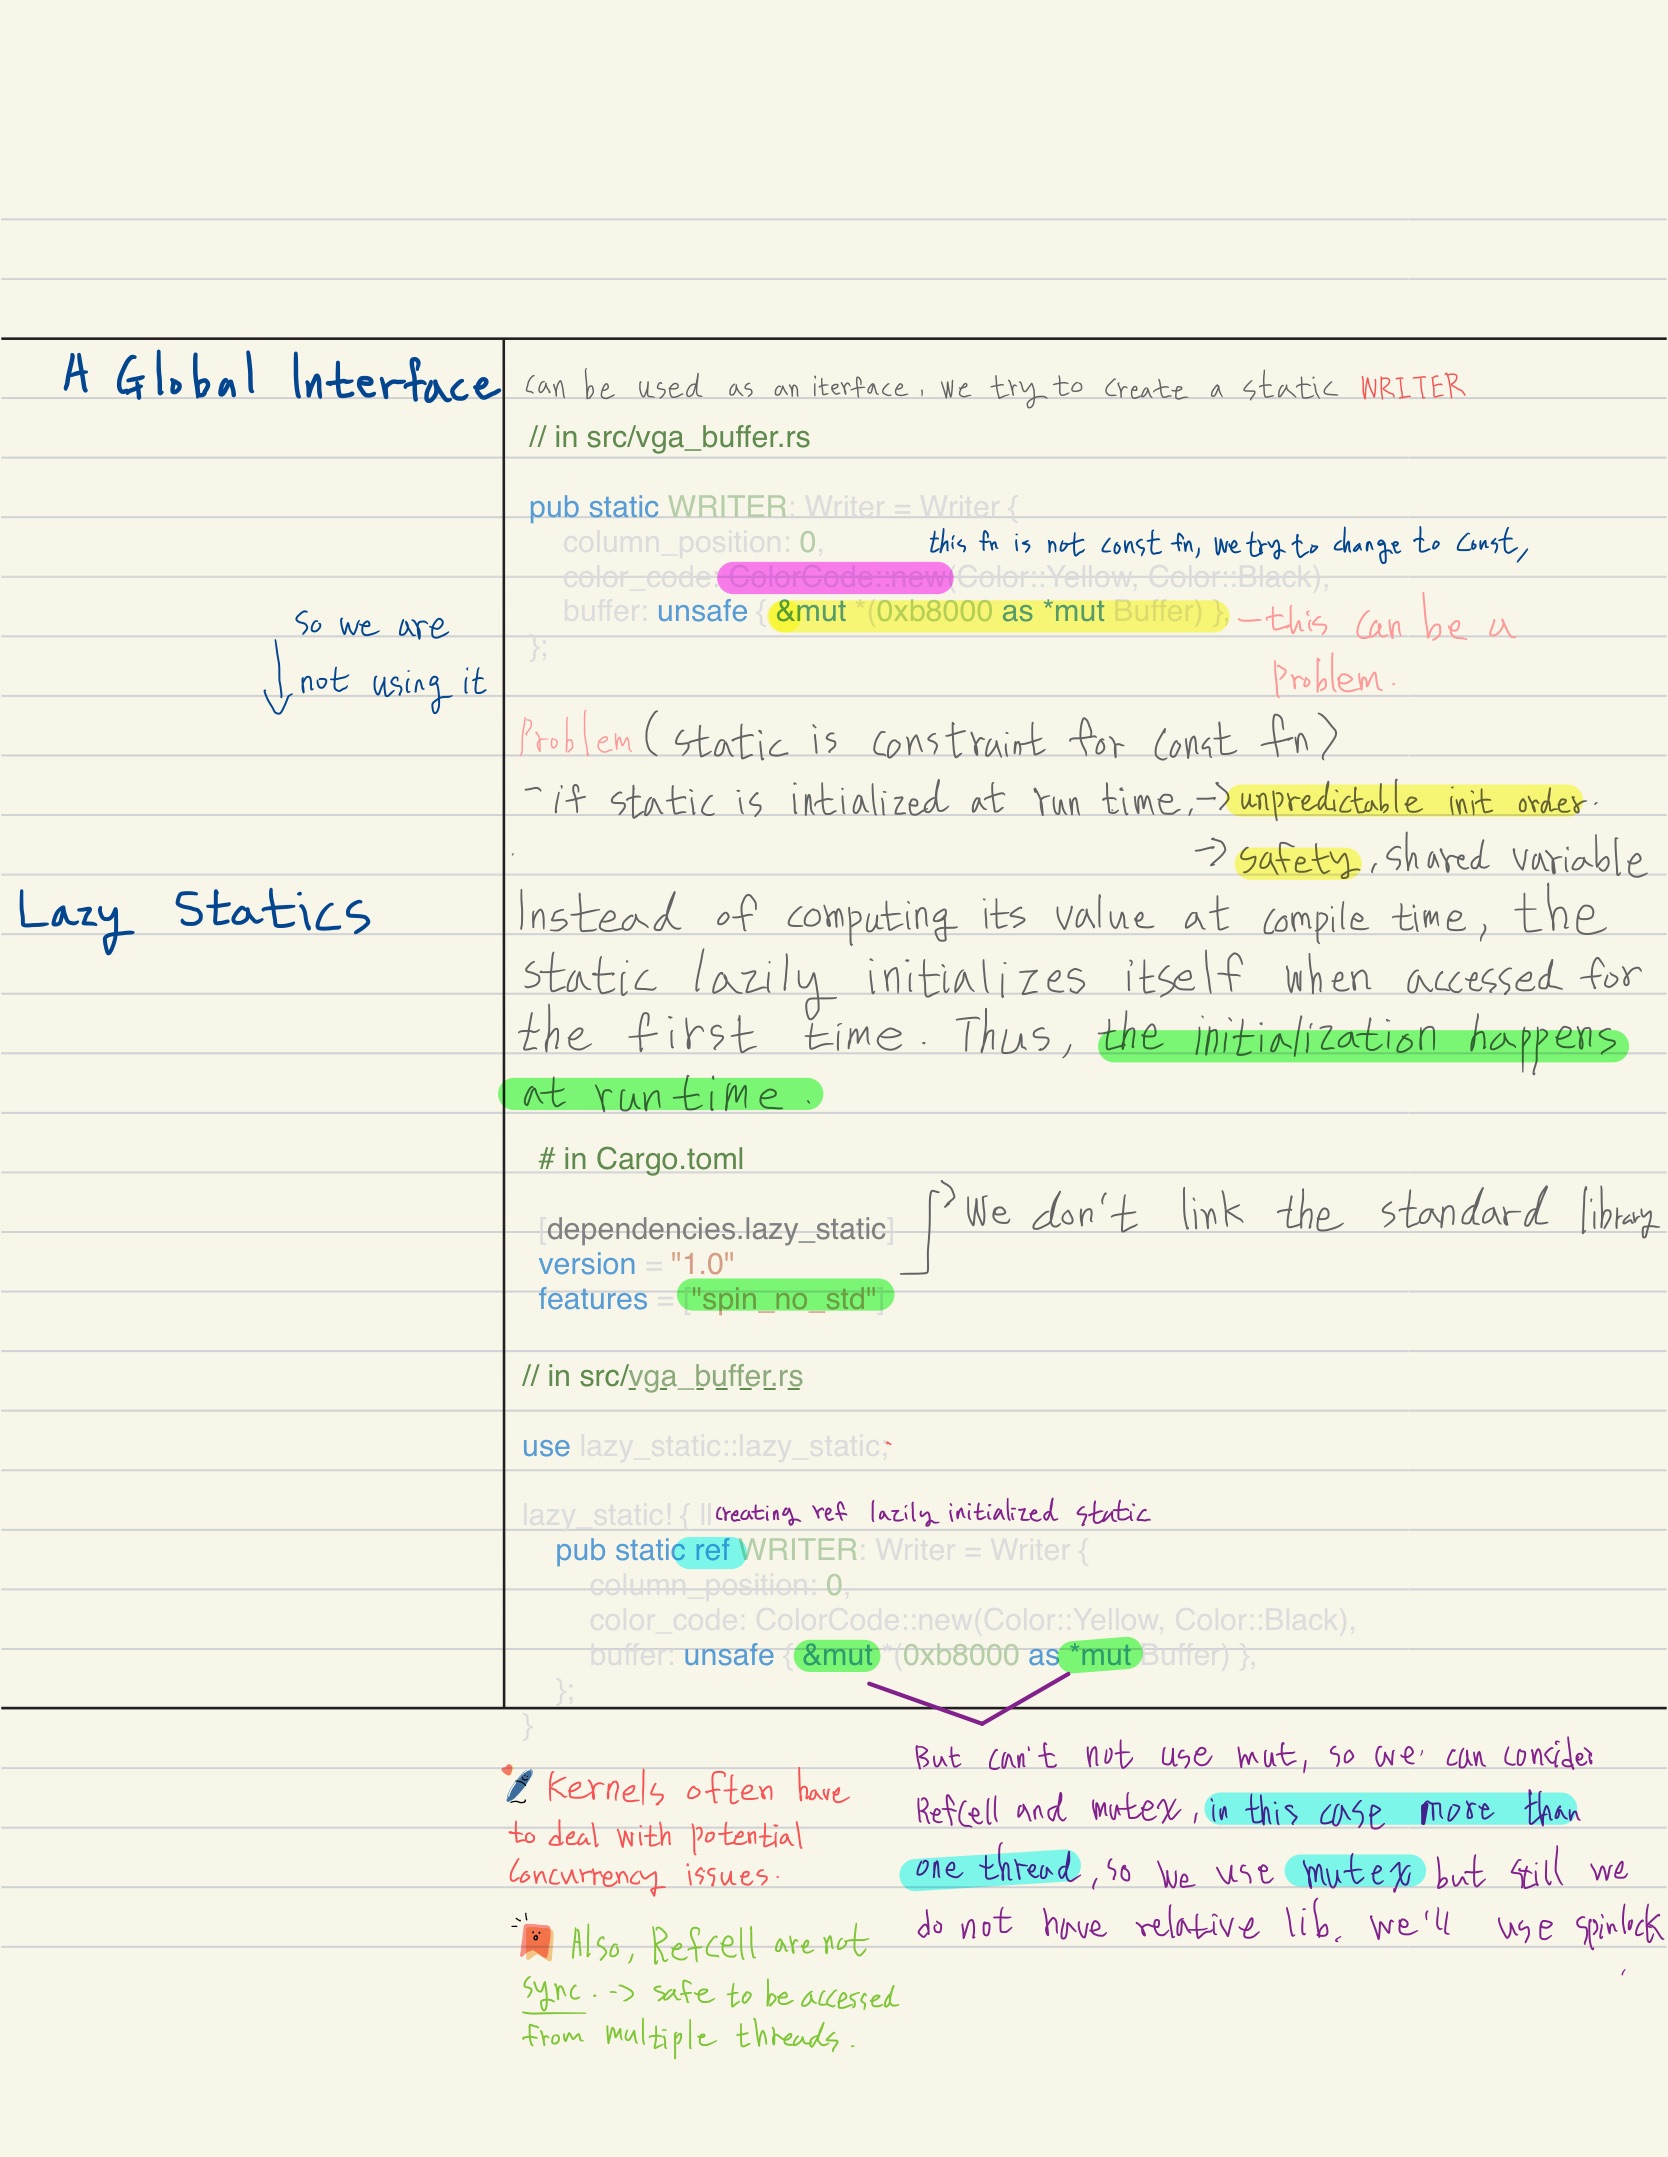 A Global Interface
can be used as an iterface. we try to create a static WRITER
// in src/vga_buffer.rs
pub static WRITER: Writer = Writer {
column_position: 0,
this fn is not const fn, we try to change to const,
color_code: ColorCode::new(Color::Yellow, Color::Black),
buffer: unsafe { &mut *(0xb8000 as *mut Buffer) },
- this can be a
problem.
};
So we are
not using it
Problem (static is constraint for const fn)
- if static is intialized at run time, -> unpredictable init order.
-> safety, shared variable
Lazy Statics
Instead of computing its value at compile time, the
static lazily initializes itself when accessed for
the first time. Thus, the initialization happens
at runtime.
# in Cargo.toml
[dependencies.lazy_static]
version = "1.0"
features = ["spin_no_std"]
We don't link the standard library
// in src/vga_buffer.rs
use lazy_static::lazy_static;
lazy_static! { || creating ref lazily initialized static
pub static ref WRITER: Writer = Writer {
column_position: 0,
color_code: ColorCode::new(Color::Yellow, Color::Black),
buffer: unsafe { &mut *(0xb8000 as *mut Buffer) },
};
}
Kernels often have
to deal with potential
concurrency issues.
Also, Refcell are not
sync. -> safe to be accessed
from multiple threads.
But can't not use mut, so we can consider
Refcell and mutex, in this case more than
one thread, so we use mutex but still we
do not have relative lib. we'll use spinlock